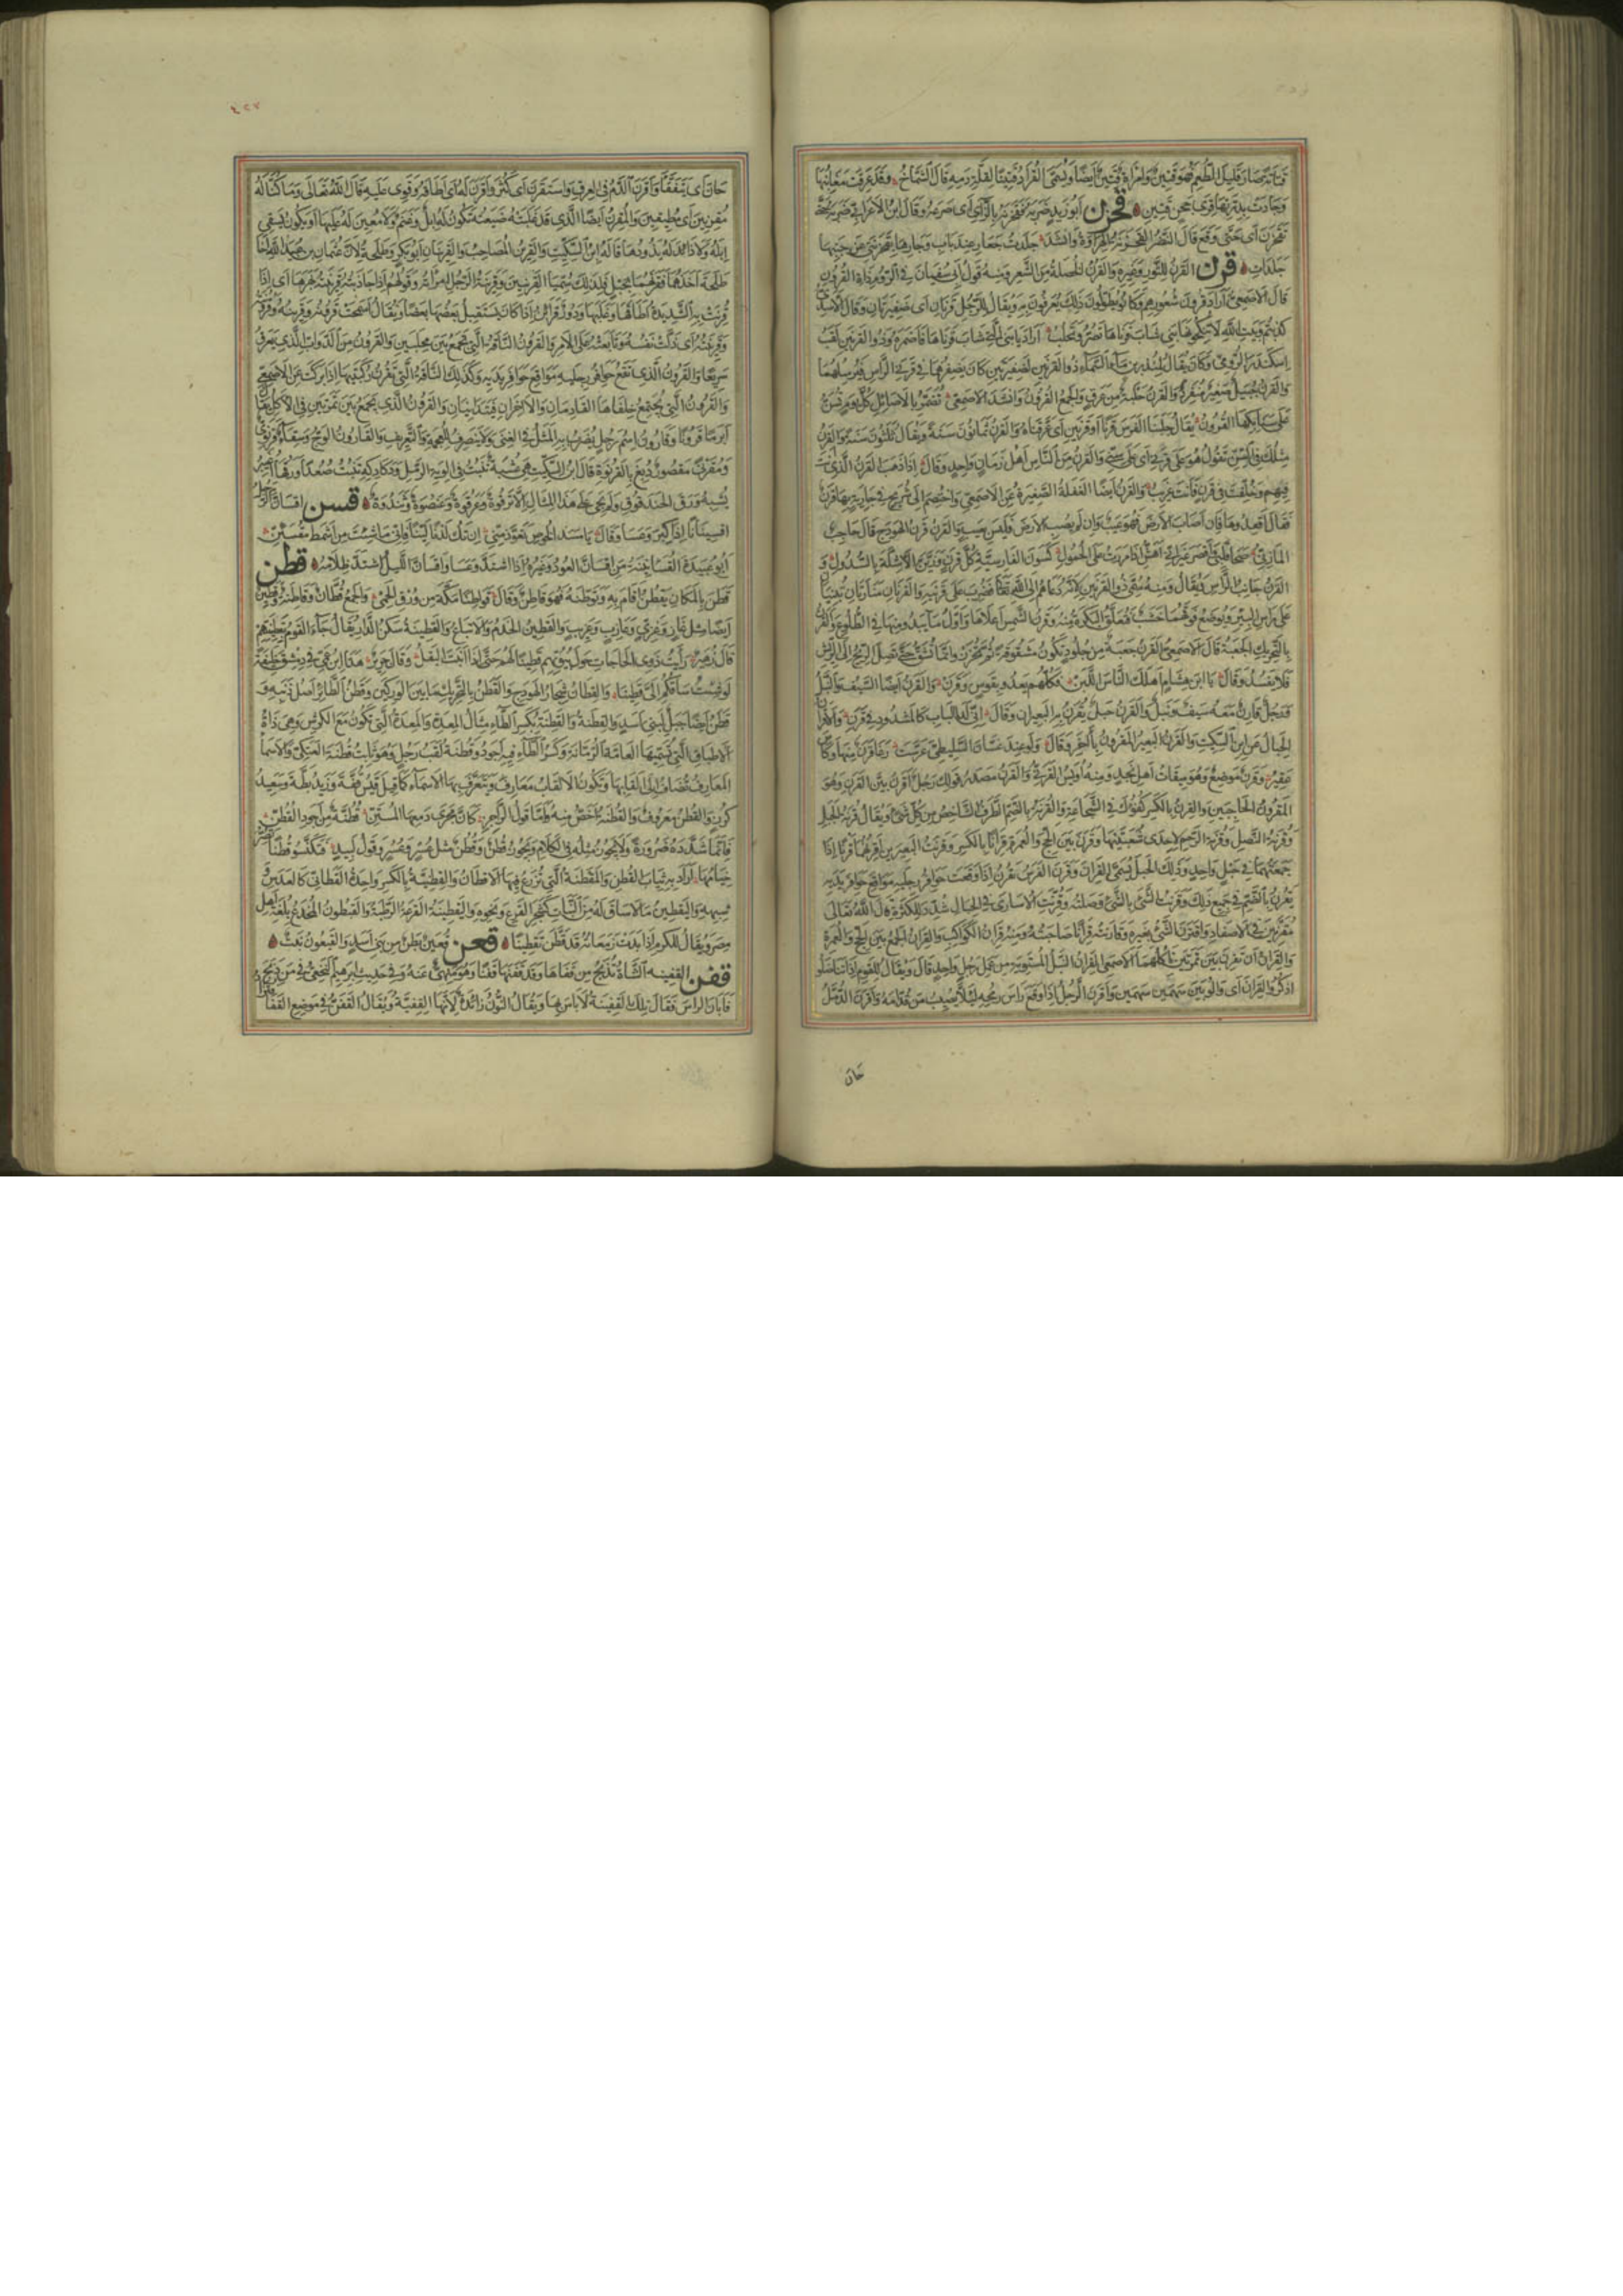 قتانة صار قليل الطعم فهو قتين وامرأة قتين ايضا ويسمى القراد قتينا لقلة دمه قال الشماخ وقد عرقت مغابنها
وجادت بدرتها قرى جحن قتين قحزن ابو زيد ضربه فقحزنه بالزاي اى صرعه وقال ابن الاعرابي ضربه
تقحزن اى حتى وقع قال النضر القحزنة الهراوة وانشد جلدت جعار عند باب وجارها بقحزنتي عن جنبها
جلدات قرن القرن للثور وغيره والقرن الخصلة من الشعر ومنه قول ابي سفيان في الروم ذات القرون
قال الاصمعي اراد قرون شعورهم وكانوا يطولون ذلك يعرفون به ويقال للرجل قرنان اى ضفيرتان وقال الاسدي
كذبتم وبيت الله لا تنكحونها بني شاب قرناها تصر وتحلب اراد يا بني التي شاب قرناها فاضمره وذو القرنين لقب
اسكندر الرومي وكان يقال للمنذر بن ماء السماء ذو القرنين لضفيرتين كان يضفرهما في قرني الرأس فيرسلهما
والقرن جبيل صغير منفرد والقرن حلبة من عرق والجمع القرون وانشد الاصمعي تضمر بالاصائل كل يوم تسن
على سنابكها القرون يقال حلبنا الفرس قرنا او قرنين اى عرقناه والقرن ثمانون سنة ويقال ثلثون سنة والقرن
مثلك في السن تقول هو على قرني اى على سني والقرن من الناس اهل زمان واحد وقال اذا ذهب القرن الذي انت
فيهم وخلفت في قرن فانت غريب والقرن ايضا العفلة الصغيرة عن الاصمعي واختصم الى شريح في جارية بها قرن
فقال اقعدوها فان اصاب الارض فهو عيب وان لم يصب الارض فليس بعيب والقرن قرن الهودج قال حاجب
المازني صحا قلبي واقصر غير اني اهش اذا مررت على الحمول كسون الفارسية كل قرن وزين الاشلة بالسدول و
القرن جانب الرأس ويقال ومنه سمى ذو القرنين لانه دعاهم الى الله تعالى فضرب على قرنيه والقرنان منارتان تبنيان
على راس البئر ويوضع فوقهما خشب فتعلق البكرة منه وقرن الشمس اعلاها واول ما يبدو منها في الطلوع والقرن
بالتحريك الجعبة قال الاصمعي القرن جعبة من جلود تكون مشقوقة ثم تخرز وانما تشق حتى تصل الريح الى الريش
فلا يفسد وقال يا ابن هشام اهلك الناس اللبن فكلهم يعدو بقوس وقرن والقرن ايضا السيف والنبل
ورجل قارن معه سيف ونبل والقرن حبل يقرن به البعيران وقال اني لدى الباب كالمشدود في قرن والاقران
الحبال عن ابن السكيت والقرن البعير المقرون بآخر وقال ولو عند غسان السليطي عرست رغا قرن منها وكاس
عقير وقرن موضع وهو ميقات اهل نجد ومنه اويس القرني والقرن مصدر قولك رجل اقرن بين القرن وهو
المقرون الحاجبين والقرن بالكسر كفؤك في الشجاعة والقرنة بالضم الطرف الشاخص من كل شئ ويقال قرنة الجبل
وقرنة النصل وقرنة الرحم لاحدى شعبتيها وقرن بين الحج والعمرة قرانا بالكسر وقرنت البعيرين اقرنهما قرنا اذا
جمعتهما في حبل واحد وذلك الحبل يسمى القران وقرن الفرس يقرن اذا وقعت حوافر رجليه مواقع حوافر يديه
يقرن بالضم في جميع ذلك وقرنت الشئ بالشئ وصلته وقرنت الاسارى في الحبال شدد للكثرة قال الله تعالى
مقرنين في الاصفاد واقترن الشئ بغيره وقارنته قرانا صاحبته ومنه قران الكواكب والقران الجمع بين الحج والعمرة
والقران ان تقرن بين تمرتين تأكلهما الاصمعي القران النبل المستوية من عمل رجل واحد قال ويقال للقوم اذا تناضلوا
اذكروا القران اى والوا بين سهمين سهمين واقرن الرجل اذا رفع راس رمحه لئلا يصيب من قدامه واقرن الدمل
حان
٤٢٧
حان اى يتفقأ واقرن الدم في العرق واستقرن اى كثر واقرن له اى اطاقه وقوى عليه قال الله تعالى وما كنا له
مقرنين اى مطيقين والمقرن ايضا الذي قد غلبته ضيعته تكون له ابل وغنم ولا معين له عليها او يكون يسقي
ابله ولا ذائد له يذودها قاله ابن السكيت والقرين المصاحب والقرينان ابو بكر وطلحة لان عثمان بن عبيد الله اخا
طلحة اخذهما فقرنهما بحبل فلذلك سميا القرينين وقرينة الرجل امرأته وقولهم اذا جاذبته قرينته بهرها اى اذا
قرنت به الشديدة اطاقها وغلبها ودور قرائن اذا كان يستقبل بعضها بعضا ويقال اسمحت قرونه وقرينه وقرونته
وقرينته اى ذلت نفسه وتابعته على الامر والقرون الناقة التي تجمع بين محلبين والقرون من الدواب الذي يعرق
سريعا والقرون الذي تقع حوافر رجليه مواقع حوافر يديه وكذلك الناقة التي تقرن ركبتيها اذا بركت عن الاصمعي
والقرون التي يجتمع خلفاها القادمان والآخران فيتدانيان والقرون الذي يجمع بين تمرتين في الاكل يقال
ابرما قرونا وقارون اسم رجل يضرب به المثل في الغنى ولا ينصرف للعجمة والتعريف والقارون الوج وسقاء قرنوي
ومقرنى مقصور دبغ بالقرنوة قال ابن السكيت هي عشبة تنبت في الوية الرمل ودكادكه تنبت صعدا ورقها اغيبر
يشبه ورق الحندقوق ولم يجئ على هذا المثال الا ترقوة وعرقوة وعنصوة وثندوة قسن اقسأن الرجل
اقسئنانا اذا كبر وعسا وقال يا مسد الخوص تعوذ مني ان تك لدنا لينا فاني ما شئت من اشمط مقسئن
ابو عبيدة القسأنينة من اقسأن العود وغيره اذا اشتد وعسا واقسأن الليل اشتد ظلامه قطن
قطن بالمكان يقطن اقام به وتوطنه فهو قاطن وقال قواطنا مكة من ورق الحمى والجمع قطان وقاطنة وقطين
ايضا مثل غاز وغزي وعازب وعزيب والقطين الخدم والاتباع والقطينة سكن الدار يقال جاء القوم بقطينهم
قال زهير رأيت ذوي الحاجات حول بيوتهم قطينا لهم حتى اذا انبت البقل وقال جرير هذا ابن عمي في دمشق خليفة
لو شئت ساقكم الي قطينا والقطان شجار الهودج والقطن بالتحريك ما بين الوركين وقطن الطائر اصل ذنبه و
قطن ايضا جبل لبني اسد والقطنة والقطنة بكسر الطاء مثال المعدة والمعدة التي تكون مع الكرش وهى ذات
الاطباق التي تسميها العامة الرمانة وكسر الطاء فيه اجود وقطنة لقب رجل وهو ثابت قطنة العتكى والاسماء
المعارف تضاف الى القابها وتكون الالقاب معارف وتتعرف بها الاسماء كما قيل قيس قفة وزيد بطة وسعيد
كرز والقطن معروف والقطنة اخص منه واما قول الراجز كان مجرى دمعها المستن قطنة من اجود القطن
فانما شدده ضرورة ولا يجوز مثله في الكلام ويجوز قطن وقطن مثل عسر وعسر وقول لبيد فتكنسوا قطنا تصر
خيامها اراد به ثياب القطن والمقطنة التي تزرع فيها الاقطان والقطنية بالكسر واحدة القطاني كالعدس
وشبهه واليقطين ما لا ساق له من النبات كشجر القرع ونحوه واليقطينة القرعة الرطبة والقيطون المخدع بلغة اهل
مصر ويقال للكرم اذا بدت زمعاته قد قطن تقطينا قعن قعين بطن من بني اسد والقيعون نبت
قفن القفينة الشاة تذبح من قفاها وقد قفنتها قفنا وهو منهى عنه وفي حديث ابرهيم النخعي في من ذبح
فابان الراس فقال تلك القفينة لا باس بها ويقال النون زائدة لانها القفية ويقال القفن في موضع القفا